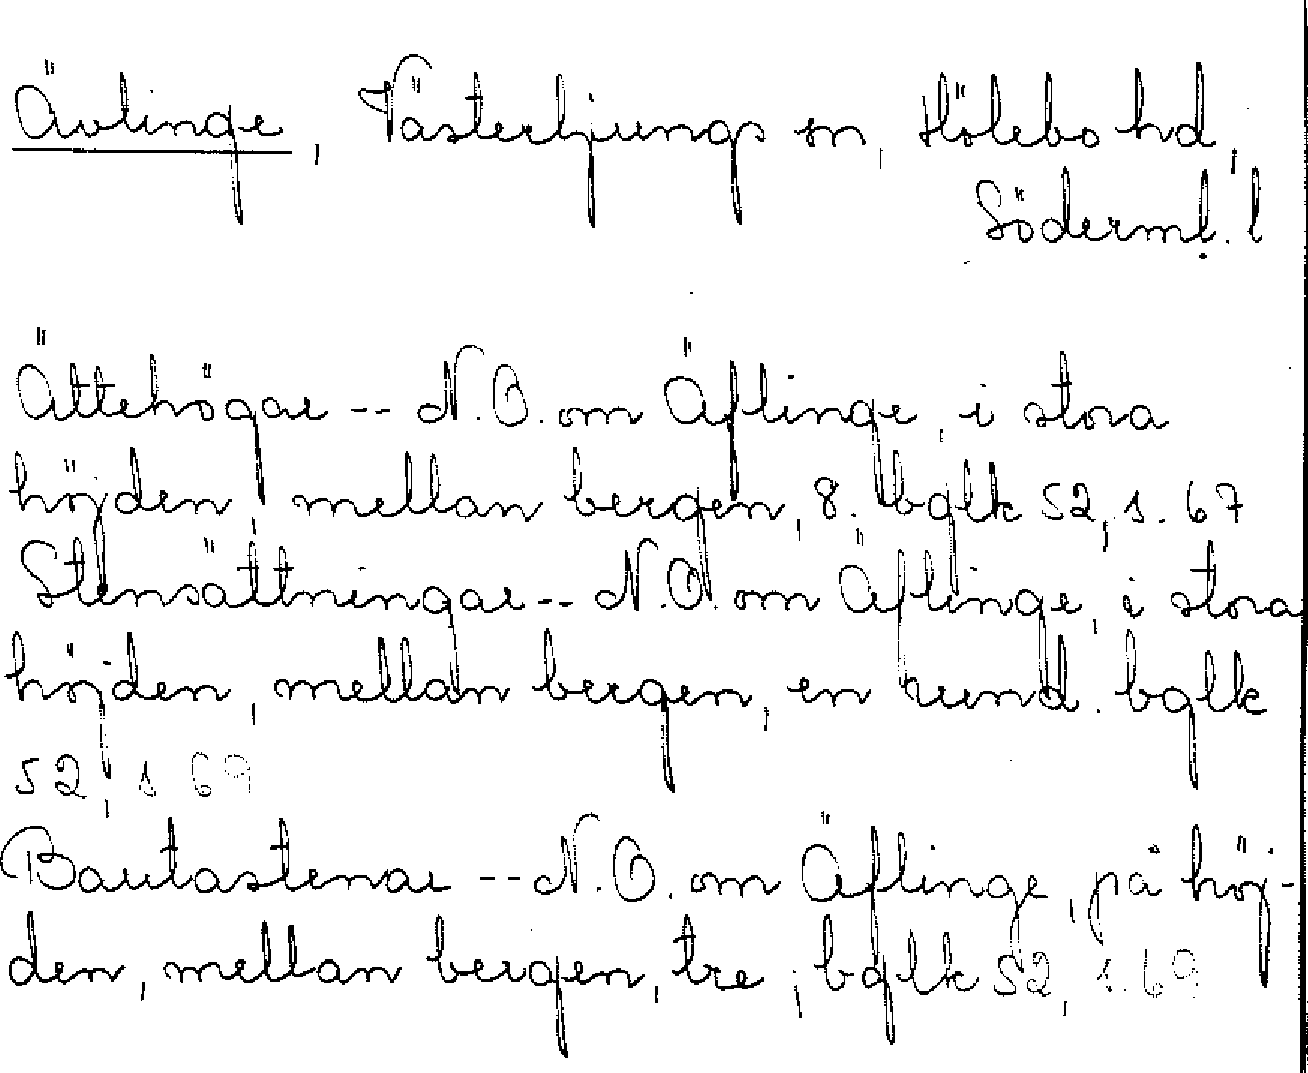 Ävlinge, Västerljungs sn, Hölebo hd,
Söderml. l
Ättehögar -- N.O. om Äflinge, i stora
höjden, mellan bergen, 8. bglk 52, s. 67
Stensättningar -- N.O. om Äflinge, i stora
höjden, mellan bergen, en rund. bglk
52, s 69
Bautastenar -- N.O. om Äflinge, på höj-
den, mellan bergen, tre; bglk 52, s. 69